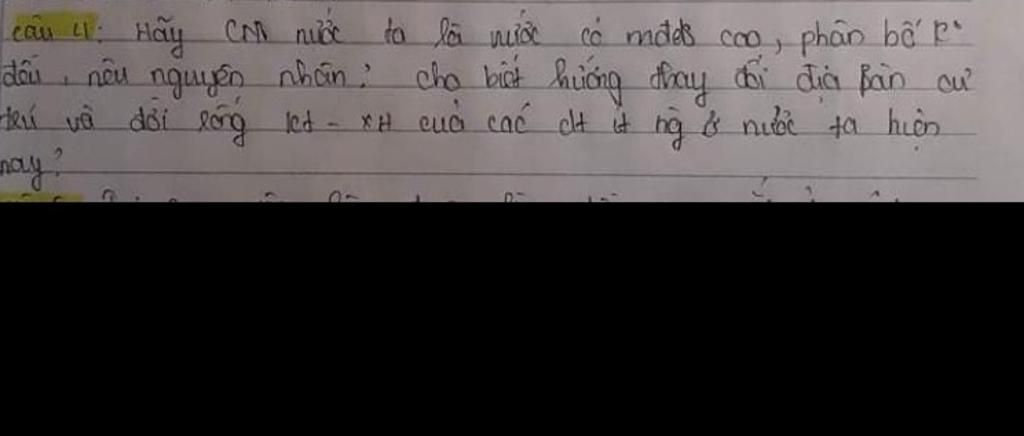 câu 4: Hãy CMR nước ta là nước có mđds cao, phân bố k°
đều, nêu nguyên nhân? Cho biết hướng thay đổi địa bàn cư
trú và đời sống kt - XH của các dt ít ng ở nước ta hiện
nay?